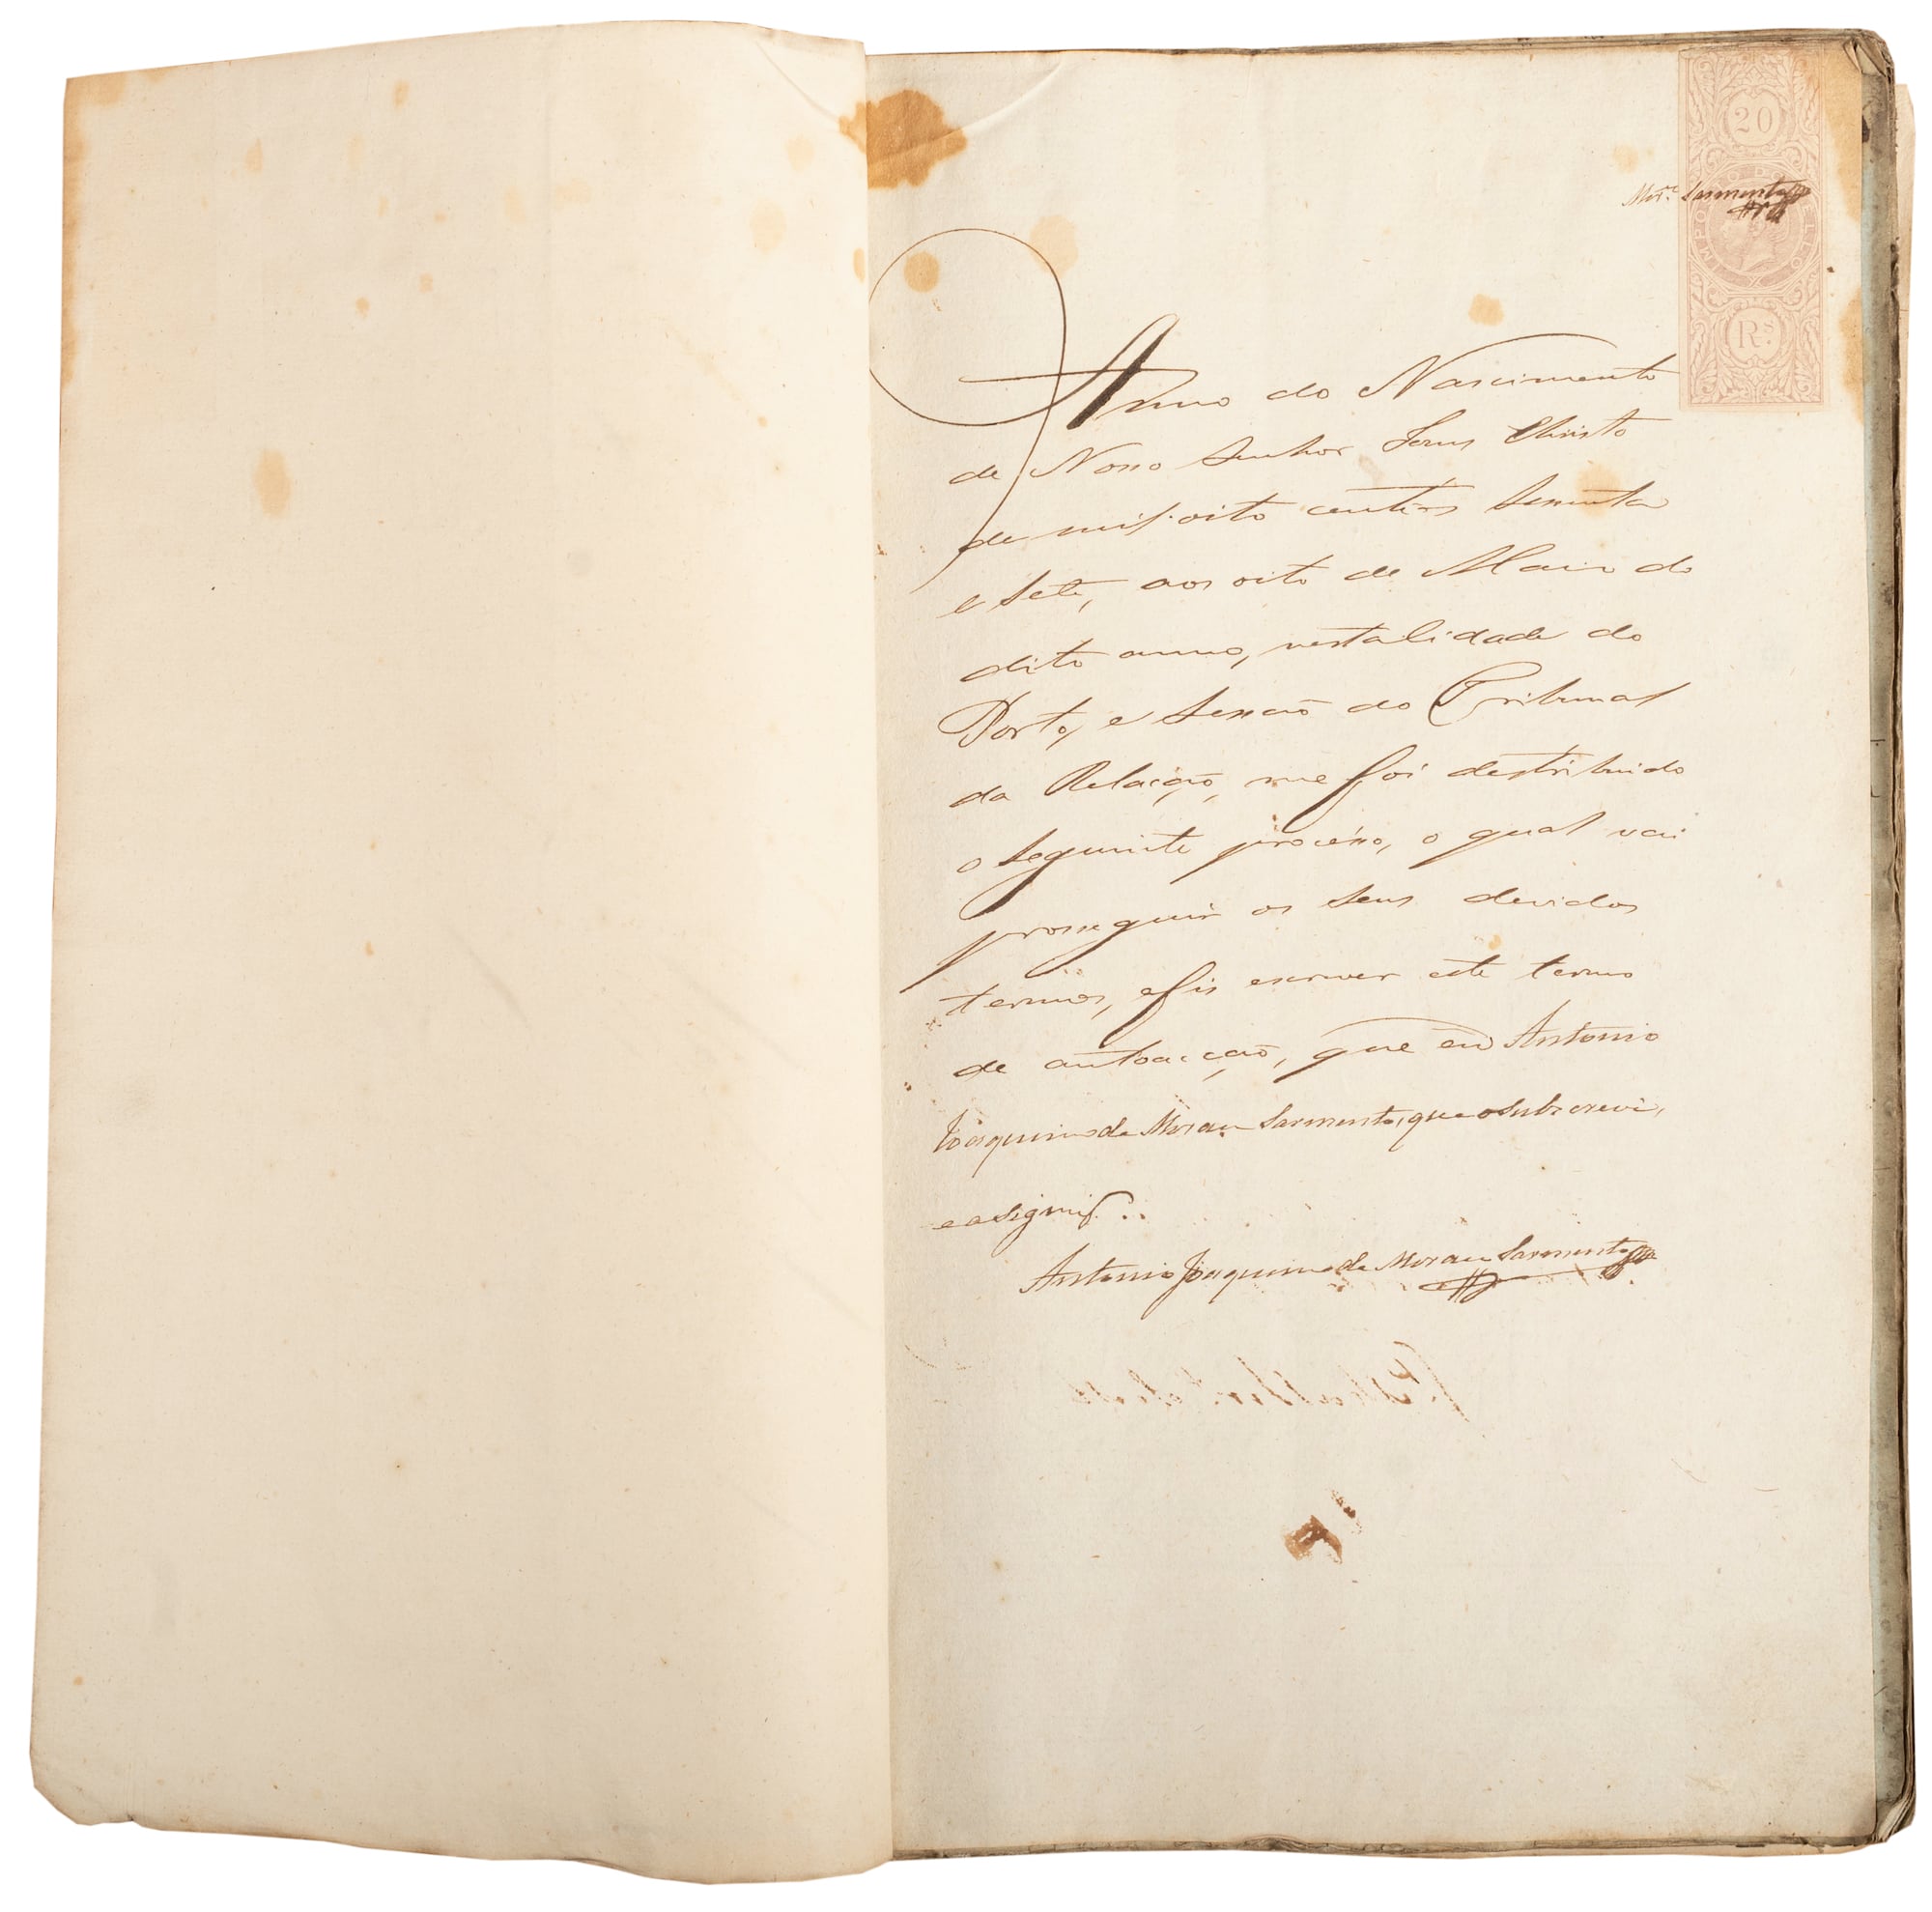 20
IMPOSTO DO SELLO
Mor.es Sarmento
Rs.
Anno do Nascimento
de Nosso Senhor Jesus Christo
de mil oito centos sessenta
e sete, aos oito de Maio do
dito anno, nesta Cidade do
Porto, e Sessão do Tribunal
da Relação, me foi destribuido
o seguinte processo, o qual vai
proseguir os seus devidos
termos, e fis escrever este termo
de autoacção, que eu Antonio
Joaquim de Moraes Sarmento, que o Subscrevi,
e asignei.
Antonio Joaquim de Moraes Sarmento